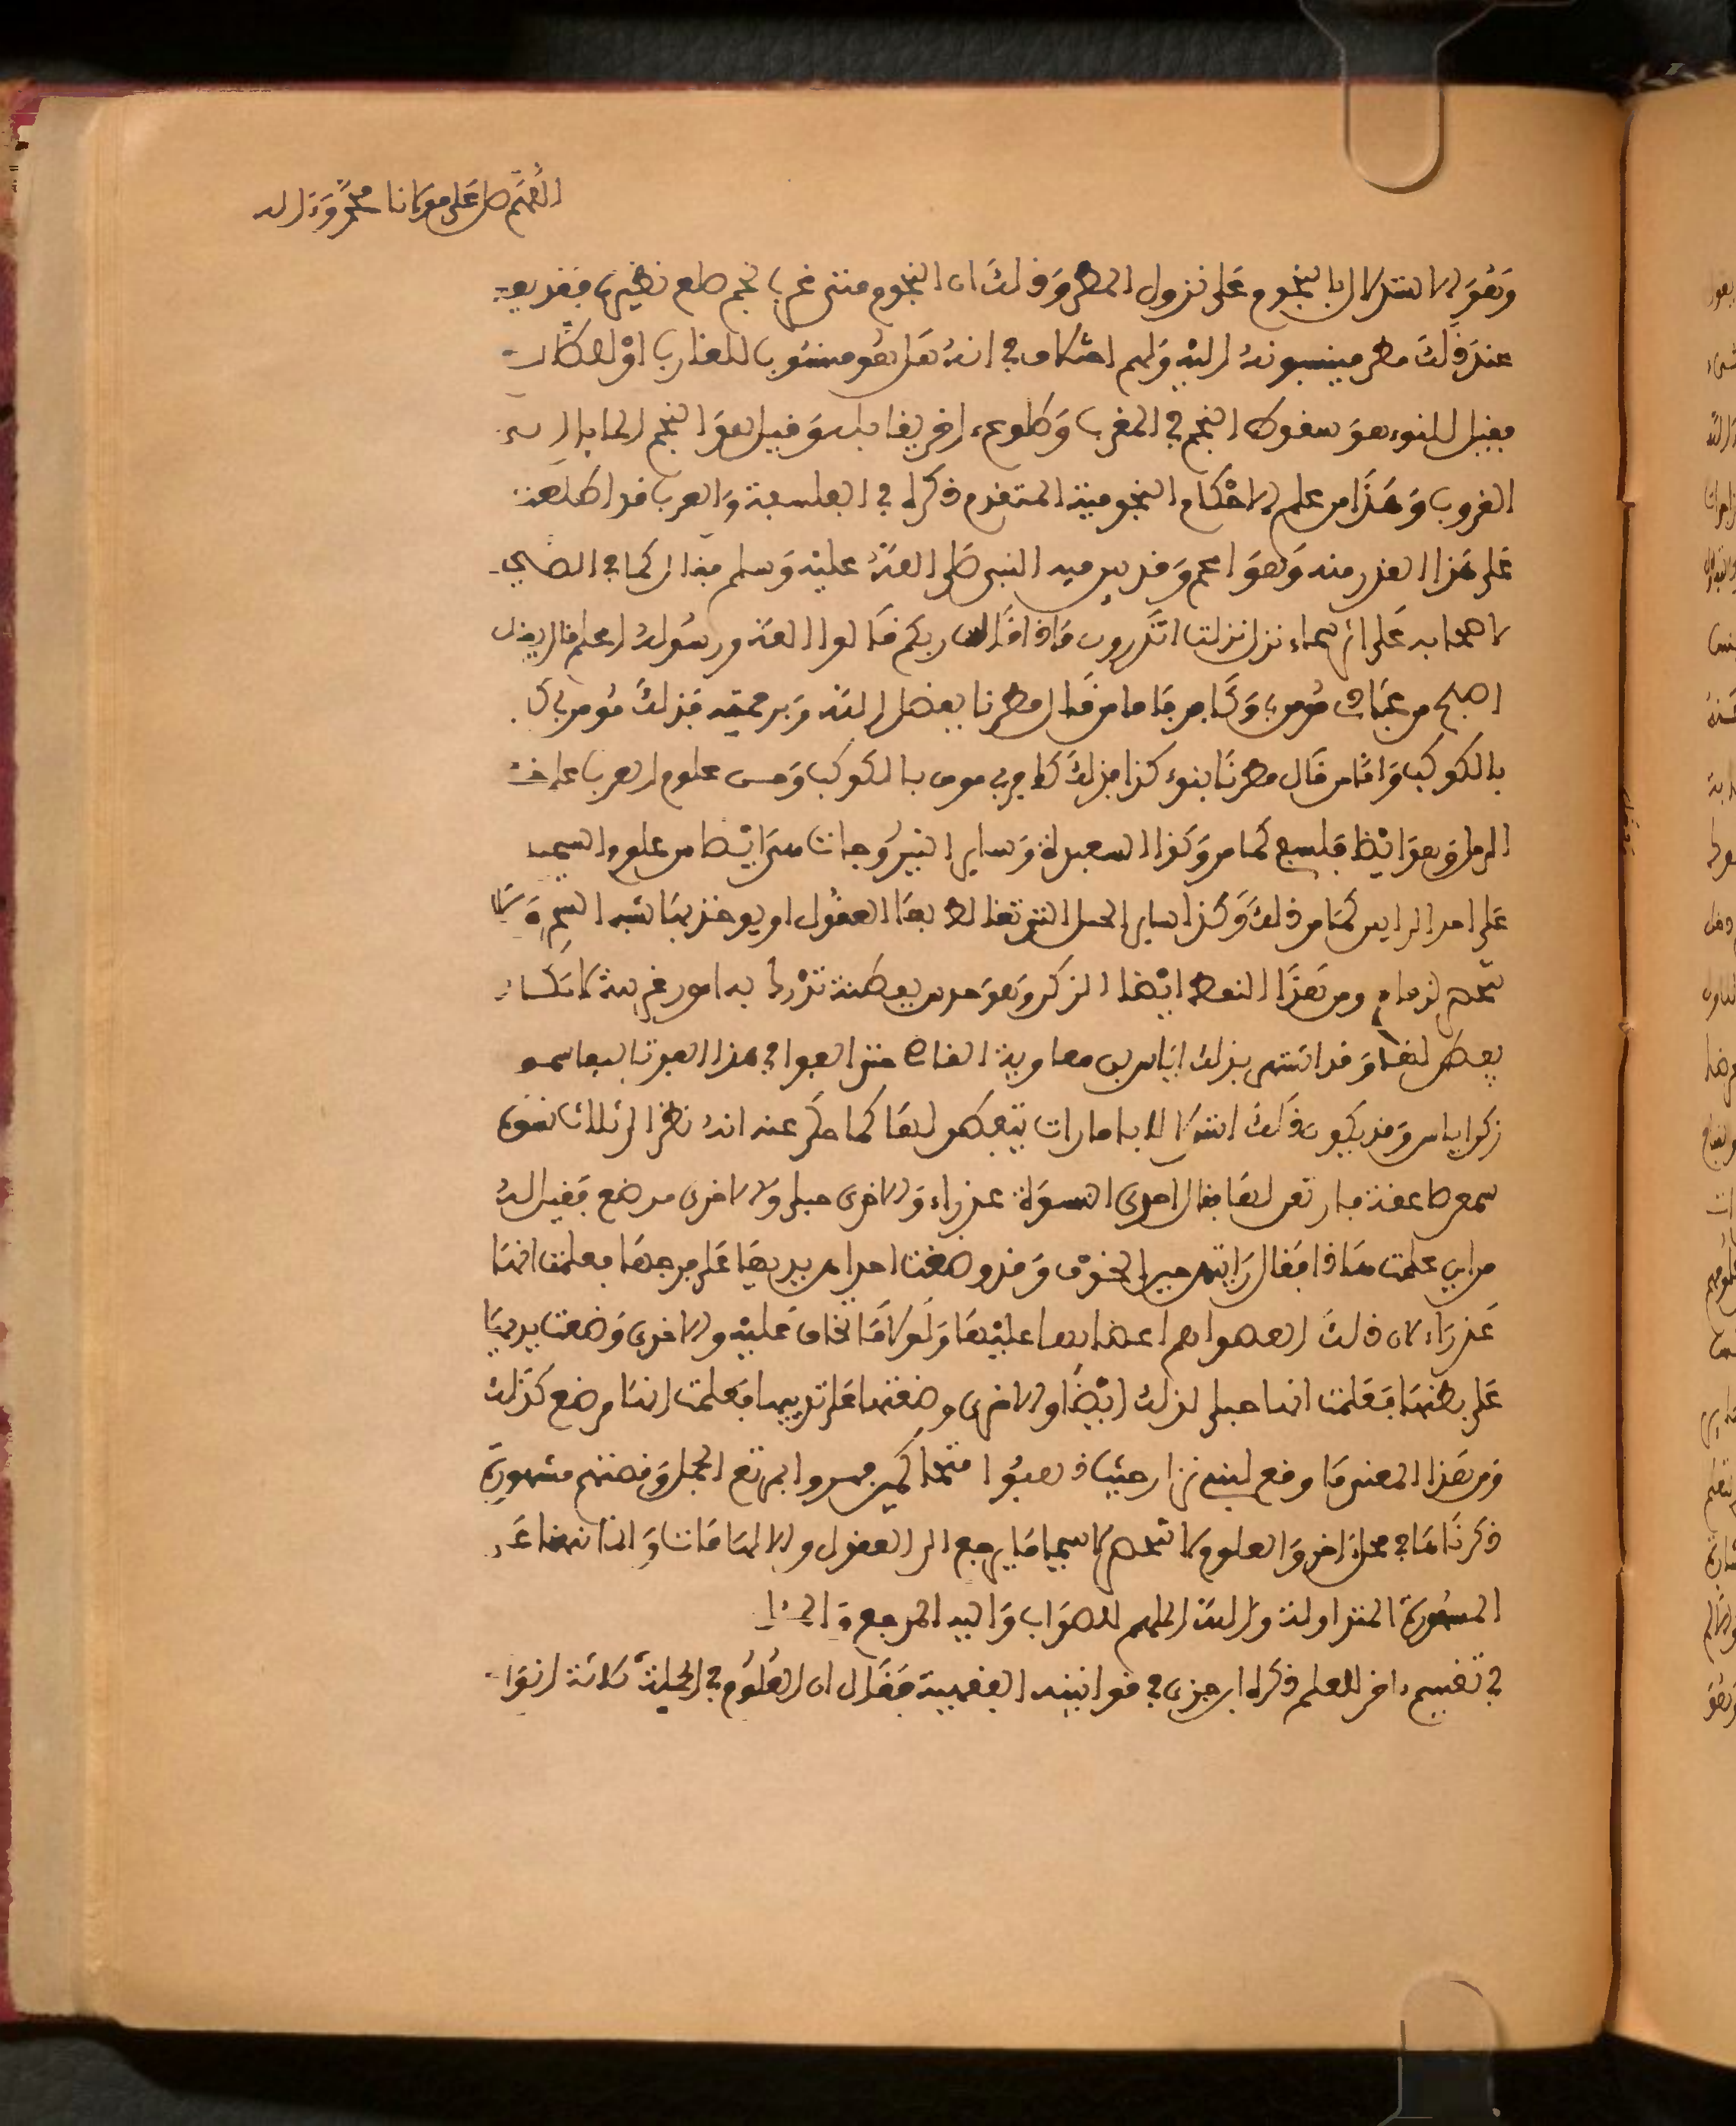 اللهم صل على مولانا محمد وءاله
وهو الاستدلال بالنجوم على نزول المطر وذلك ان النجوم متى غرب نجم طلع نظيره فقد يقع
عند ذلك مطر فينسبونه اليه ولهم اختلاف في انه هل هو منسوب للغارب او للطالع
فقيل النوء هو سقوط النجم في المغرب وطلوع اخر يقابله وقيل هو النجم المايل الى
الغروب وهذا من علم الاحكام النجومية المتقدم ذكره في الفلسفة والعرب قد اطلعت
على هذا القدر منه وهو اعم وقد بين فيه النبي صلى الله عليه وسلم فقال كما في الصحيح
لاصحابه على اثر سماء نزلت اتدرون ماذا قال ربكم قالوا الله ورسوله اعلم قال يقول
اصبح من عبادي مومن وكافر فاما من قال مطرنا بفضل الله وبرحمته فذلك مومن بي كافر
بالكوكب واما من قال مطرنا بنوء كذا فذلك كافر بي مومن بالكوكب ومن علوم العرب علم خط
الرمل وهو ايضا فلسفي كما مر وكذا الشعبذة وساير النيروجات من ايضا من علوم السحر
على احد الرايين كما مر ذلك وكذا ساير الحيل التي تغالط بها العقول او يوخذ بها شبه السحر ولا
تنحصر لزمام ومن هذا النمط ايضا الزكن وهو حدس بفطنة تدرك به امور غريبة لا يكاد
يفطن لها وقد اشتهر بذلك اياس بن معاوية القاضي حتى الفوا في هذا الفن تاليفا سموه
زكن اياس وقد يكون ذلك استدلالا بامارات يتفطن لها كما حكي عنه انه نظر الى ثلاث نسوة
سمعن صاعقة فارتعن لها فقال احدى النسوة عذراء والاخرى حبلى والاخرى مرضع فقيل له
من اين علمت هذا فقال رايتهن حين الخوف وقد وضعت احداهن يديها على فرجها فعلمت انها
عذراء لان ذلك اهم اعضايها عليها واولى ما تخاف عليه والاخرى وضعت يديها
على بطنها فعلمت انها حبلى لذلك ايضا والاخرى وضعتها على ثدييها فعلمت انها مرضع كذلك
ومن هذا المعنى ما وقع لبني نزار حيث ذهبوا متحاكمين في امر الجمل وقصتهم مشهورة
ذكرناها في محل ءاخر والعلوم لا تنحصر لا سيما ما يرجع الى العقول والالهامات وانما نبهنا على
المشهورة المتداولة والله الملهم للصواب واليه المرجع والمئاب
في تقسيم ءاخر للعلم ذكره ابن جزي في قوانينه الفقهية فقال ان العلوم في الجملة ثلاثة انواع